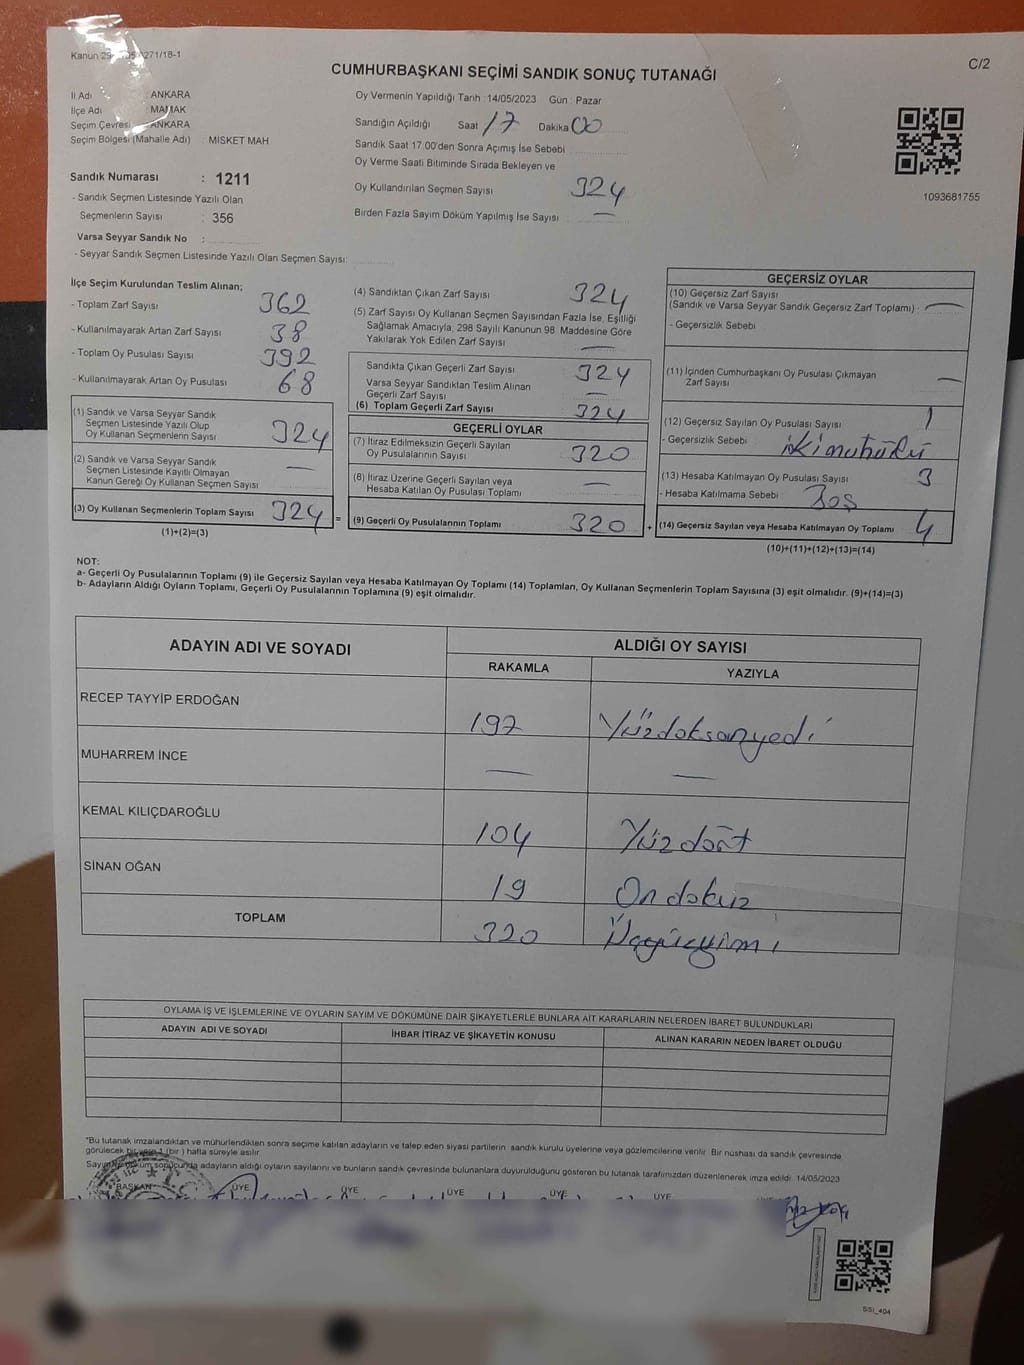 C/2
CUMHURBAŞKANI SEÇİMİ SANDIK SONUÇ TUTANAĞI
İl Adı : ANKARA
İlçe Adı : MAMAK
Seçim Çevresi : ANKARA
Seçim Bölgesi (Mahalle Adı) : MISKET MAH
Sandık Numarası : 1211
- Sandık Seçmen Listesinde Yazılı Olan
Seçmenlerin Sayısı : 356
Varsa Seyyar Sandık No :
- Seyyar Sandık Seçmen Listesinde Yazılı Olan Seçmen Sayısı:
Oy Vermenin Yapıldığı Tarih :14/05/2023 Gün : Pazar
Sandığın Açıldığı Saat 17 Dakika 00
Sandık Saat 17.00'den Sonra Açımış İse Sebebi
Oy Verme Saati Bitiminde Sırada Bekleyen ve
Oy Kullandırılan Seçmen Sayısı 324
Birden Fazla Sayım Döküm Yapılmış İse Sayısı —
1093681755
İlçe Seçim Kurulundan Teslim Alınan;
- Toplam Zarf Sayısı 362
- Kullanılmayarak Artan Zarf Sayısı 38
- Toplam Oy Pusulası Sayısı 392
- Kullanılmayarak Artan Oy Pusulası 68
(1) Sandık ve Varsa Seyyar Sandık
Seçmen Listesinde Yazılı Olup
Oy Kullanan Seçmenlerin Sayısı 324
(2) Sandık ve Varsa Seyyar Sandık
Seçmen Listesinde Kayıtlı Olmayan
Kanun Gereği Oy Kullanan Seçmen Sayısı —
(3) Oy Kullanan Seçmenlerin Toplam Sayısı 324 =
(1)+(2)=(3)
(4) Sandıktan Çıkan Zarf Sayısı 324
(5) Zarf Sayısı Oy Kullanan Seçmen Sayısından Fazla İse, Eşitliği
Sağlamak Amacıyla; 298 Sayılı Kanunun 98. Maddesine Göre
Yakılarak Yok Edilen Zarf Sayısı —
Sandıkta Çıkan Geçerli Zarf Sayısı 324
Varsa Seyyar Sandıktan Teslim Alınan
Geçerli Zarf Sayısı —
(6) Toplam Geçerli Zarf Sayısı 324
GEÇERLİ OYLAR
(7) İtiraz Edilmeksizin Geçerli Sayılan
Oy Pusulalarının Sayısı 320
(8) İtiraz Üzerine Geçerli Sayılan veya
Hesaba Katılan Oy Pusulası Toplamı —
(9) Geçerli Oy Pusulalarının Toplamı 320 +
GEÇERSİZ OYLAR
(10) Geçersiz Zarf Sayısı
(Sandık ve Varsa Seyyar Sandık Geçersiz Zarf Toplamı) : —
- Geçersizlik Sebebi
(11) İçinden Cumhurbaşkanı Oy Pusulası Çıkmayan
Zarf Sayısı —
(12) Geçersiz Sayılan Oy Pusulası Sayısı 1
- Geçersizlik Sebebi iki mühürlü
(13) Hesaba Katılmayan Oy Pusulası Sayısı 3
- Hesaba Katılmama Sebebi Boş
(14) Geçersiz Sayılan veya Hesaba Katılmayan Oy Toplamı 4
(10)+(11)+(12)+(13)=(14)
NOT:
a- Geçerli Oy Pusulalarının Toplamı (9) ile Geçersiz Sayılan veya Hesaba Katılmayan Oy Toplamı (14) Toplamları, Oy Kullanan Seçmenlerin Toplam Sayısına (3) eşit olmalıdır. (9)+(14)=(3)
b- Adayların Aldığı Oyların Toplamı, Geçerli Oy Pusulalarının Toplamına (9) eşit olmalıdır.
ADAYIN ADI VE SOYADI ALDIĞI OY SAYISI
RAKAMLA YAZIYLA
RECEP TAYYİP ERDOĞAN 197 Yüzdoksanyedi
MUHARREM İNCE — —
KEMAL KILIÇDAROĞLU 104 Yüzdört
SİNAN OĞAN 19 Ondokuz
TOPLAM 320 Üçyüzyirmi
OYLAMA İŞ VE İŞLEMLERİNE VE OYLARIN SAYIM VE DÖKÜMÜNE DAİR ŞİKAYETLERLE BUNLARA AİT KARARLARIN NELERDEN İBARET BULUNDUKLARI
ADAYIN ADI VE SOYADI İHBAR İTİRAZ VE ŞİKAYETİN KONUSU ALINAN KARARIN NEDEN İBARET OLDUĞU
"Bu tutanak imzalandıktan ve mühürlendikten sonra seçime katılan adayların ve talep eden siyasi partilerin sandık kurulu üyelerine veya gözlemcilerine verilir. Bir nüshası da sandık çevresinde
görülecek bir yere 1 (bir) hafta süreyle asılır.
döküm sonucunda adayların aldığı oyların sayılarını ve bunların sandık çevresinde bulunanlara duyurulduğunu gösteren bu tutanak tarafımızdan düzenlenerek imza edildi. 14/05/2023
BAŞKAN ÜYE ÜYE ÜYE ÜYE ÜYE
SSI_404